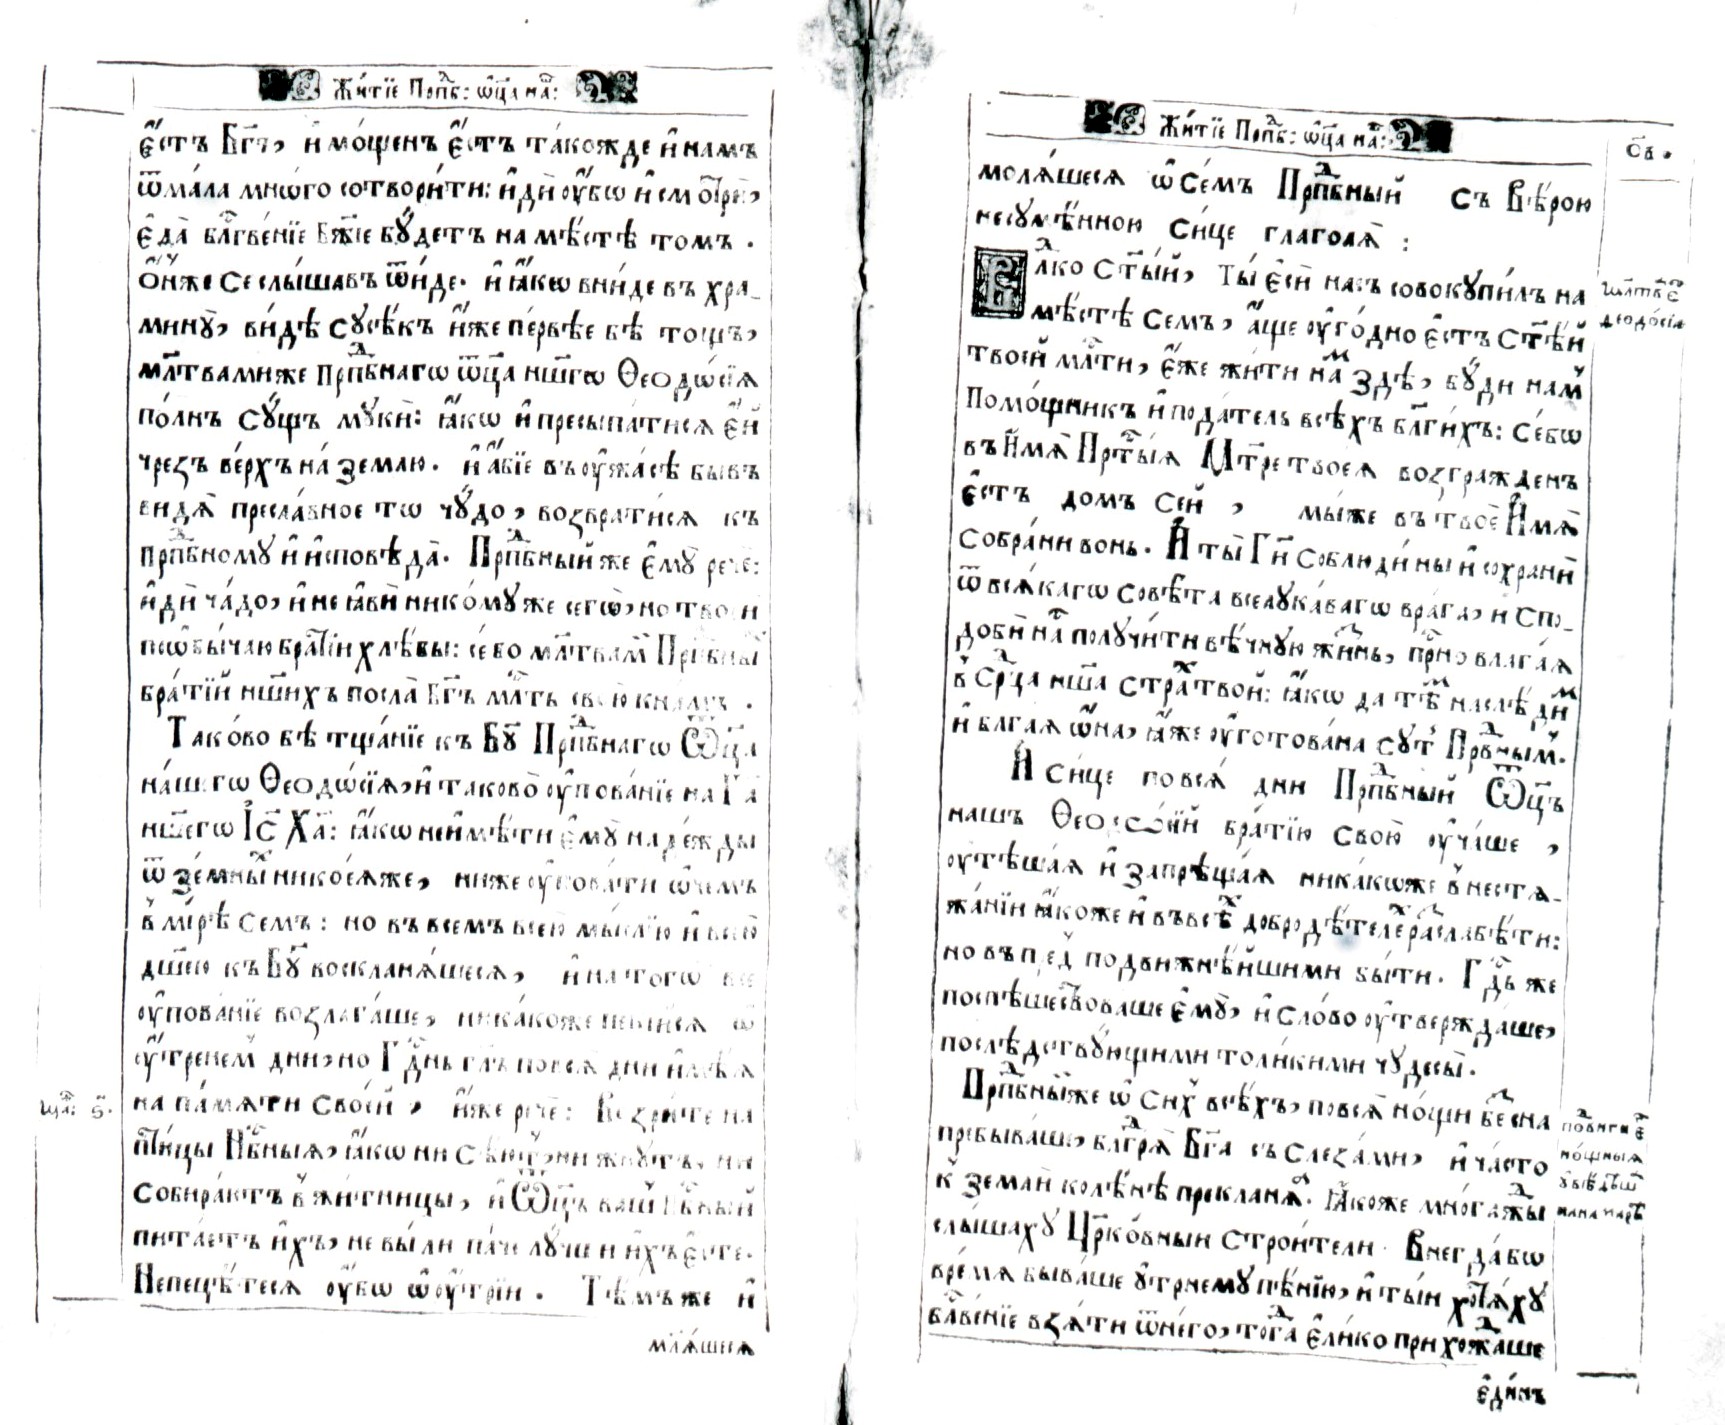 Жи́тїе Прпⷣб: ѡ҆ц҃а на́ш:
є҆́стъ Бг҃ъ, и҆ мо́щенъ є҆́стъ та́кожде и҆ намъ
ѿма́ла мнѡ́го сотвори́ти: и҆дѝ ᲂу҆́бѡ и҆
є҆да̀ блг҃ве́нїе бж҃їе бꙋ́детъ на мѣ́стѣ томъ.
О҆́нже се слы́шавъ ѿи́де. и҆ ꙗ҆́кѡ вни́де въ хра-
минꙋ̀, ви́дѣ сꙋсѣ́къ и҆́же пе́рвѣе бѣ то́щъ,
мл҃твамиже прпⷣбнагѡ ѿц҃а нш҃гѡ Ѳеодѡ́сїѧ
по́лнъ сꙋ́щъ мꙋкѝ: ꙗ҆́кѡ и҆ пресыпа́тисѧ є҆́й
чрезъ ве́рхъ на́ землю. и҆ а҆́бїе въ ᲂу҆жа́сѣ бывъ
видѧ̀ пресла́вное тѡ чꙋ́до, возврати́сѧ къ
прпⷣбномꙋ и҆ и҆сповѣ́да. Прпⷣбный же є҆мꙋ̀ речѐ:
и҆дѝ ча́до, и҆ не ꙗ҆вѝ нико́мꙋже сегѡ̀, но твори
поѡ҆бы́чаю бра́тїи хлѣ́бы: се́ бо мл҃твам Прпⷣбный
бра́тїй нш҃ихъ посла̀ Бг҃ъ млⷭ҇ть свою̀ к на́мъ.
Тако́во бѣ тща́нїе къ Бг҃ꙋ Прпⷣбнагѡ Ѿц҃а
на́шегѡ Ѳеодѡ́сїѧ, и҆ таково̀ ᲂу҆пова́нїе на Гд҃а
нш҃егѡ І҆с҃ Хⷭ҇а: ꙗ҆́кѡ не и҆мѣ́ти є҆мꙋ̀ наде́жды
ѿ земны́хъ никое́ѧже, ниже ᲂу҆пова́ти ѡ҆ чемъ
в̾ ми́рѣ семъ: но въ всемъ всею̀ мы́слїю и҆ всею̀
дш҃ею къ Бг҃ꙋ восклонѧ́шесѧ, и҆ на того̀ все
ᲂу҆пова́нїе возлага́ше, ника́коже пекі́йсѧ ѡ
ᲂу҆́тренем дни, но Гдⷭ҇нь гл҃ъ по всѧ̀ дни и҆мѣ́ѧ
на па́мѧти свое́й, и҆́же речѐ: Воззри́те на
пти́цы Нбⷭ҇ныѧ, ꙗ҆́кѡ ни сѣ́ютъ, ни жнꙋтъ, ни
собира́ютъ в̾ жи́тницы, и҆ Ѿц҃ъ ва́ш Нбⷭ҇ный
пита́етъ и҆̀хъ, не вы́ ли па́че лꙋ́чши и҆̀хъ є҆сте.
Непецѣ́тесѧ ᲂу҆́бѡ ѡ҆ ᲂу҆́трїи. Тѣ́мъ же и҆
мл҃ѧ́шесѧ
Жи́тїе Прпⷣб: ѡ҆ц҃а на́ш:
св҃.
молѧ́шесѧ ѡ҆ се́мъ Прпⷣбный съ вѣ́рою
несꙋмѣ́нною си́це глаго́лѧ:
Влⷣко ст҃ы́й, Ты́ є҆сѝ на́съ совокꙋпи́лъ на
мѣ́стѣ семъ, а҆́ще ᲂу҆го́дно є҆́стъ ст҃ѣ́й
твое́й млⷭ҇ти, є҆́же жи́ти намъ здѣ̀, бꙋ́ди нам
Помо́щникъ и҆ пода́тель всѣ́хъ блг҃и́хъ: Се́бѡ
въ И҆́мѧ Прⷭ҇ты́ѧ Мт҃ре твоеѧ̀ возгражденъ
є҆́стъ домъ сей, мы́же въ твоѐ И҆́мѧ
собра́ни вонь. И҆ ты̀ Гд҃и соблюди́ ны и҆ сохранѝ
ѿ всѧ́кагѡ совѣ́та вселꙋка́вагѡ вра́га, и҆ спо-
доби̾ на́с полꙋчи́ти вѣ́чнꙋю жи́знь, при́сно влага́ѧ
в̾ срⷣца нш҃а страх твой: ꙗ҆́кѡ да тѣм наслѣ́дим
и҆ блага́ѧ ѡ҆́на, ꙗ҆́же ᲂу҆гото́вана сꙋт Прⷣвным.
И҆ си́це по всѧ́ дни Прпⷣбный Ѿц҃ъ
нашъ Ѳеодѡ́сїй бра́тїю свою̀ ᲂу҆ча́ше,
ᲂу҆тѣша́ѧ и҆ запрѣща́ѧ ника́кѡже в̾ нестѧ-
жа́нїи ꙗ҆́коже и҆ въ всѣх добродѣ́телех раслабѣ́ти:
но въ пред подвижнѣ́йшими бы́ти. Гдⷭ҇ь же
поспѣшествоваше є҆мꙋ̀, и҆ сло́во ᲂу҆твержда́ше,
послѣ́дствꙋющими толи́кими чꙋдесы̀.
Прпⷣбныйже ѡ҆ сих всѣ́хъ, повсѧ̀ но́щи без сна
пребыва́ше, блгⷣрѧ̀ Бг҃а съ слеза́ми, и҆ ча́сто
к̾ земли колѣ́нѣ преклонѧ́ѧ. Ꙗ҆́коже мно́гажды
слы́шахꙋ Цр҃ко́вныи строи́тели. Внегда́бѡ
вре́мѧ быва́ше ᲂу҆́трнемꙋ пѣ́нїю, и҆ ты́и хотѧ́хꙋ
бл҃ве́нїе взѧ́ти ѿ него̀, тогда̀ є҆ли́ко прихожда́ше
є҆ди́нъ
мл҃тва є҆г
Ѳеодо́сїѧ
по́двиги є҆г
но́щныѧ